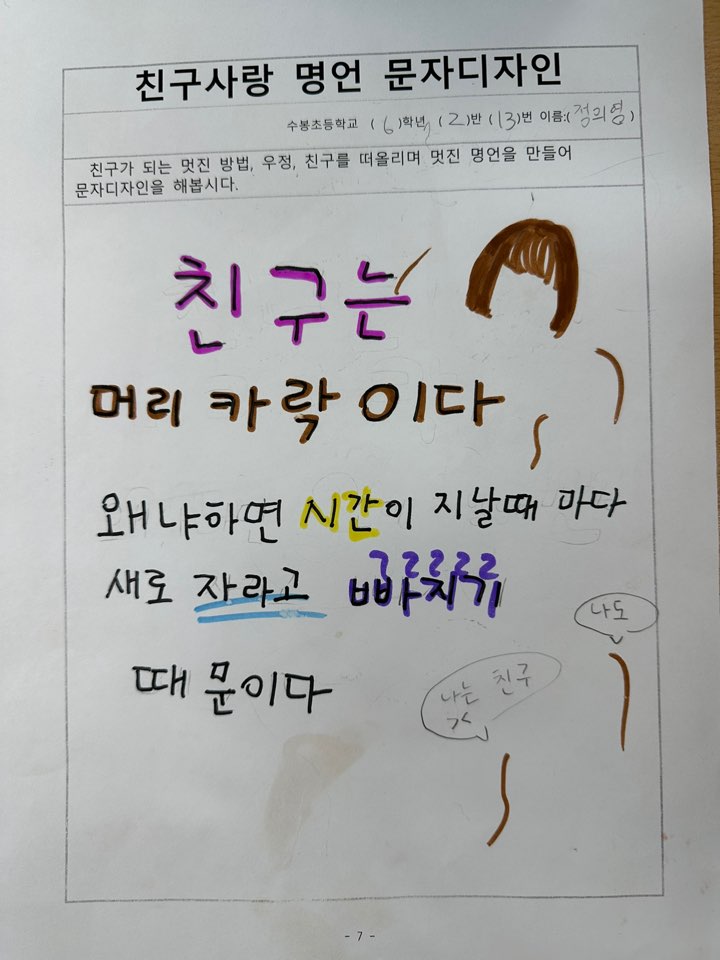 친구사랑 명언 문자디자인
수봉초등학교 (6)학년 (2)반 (13)번 이름:(정의영)
친구가 되는 멋진 방법, 우정, 친구를 떠올리며 멋진 명언을 만들어
문자디자인을 해봅시다.
친구는
머리 카락 이다
왜냐하면 시간이 지날때 마다
새로 자라고 빠지기
나도
때문이다
나는 친구
- 7 -